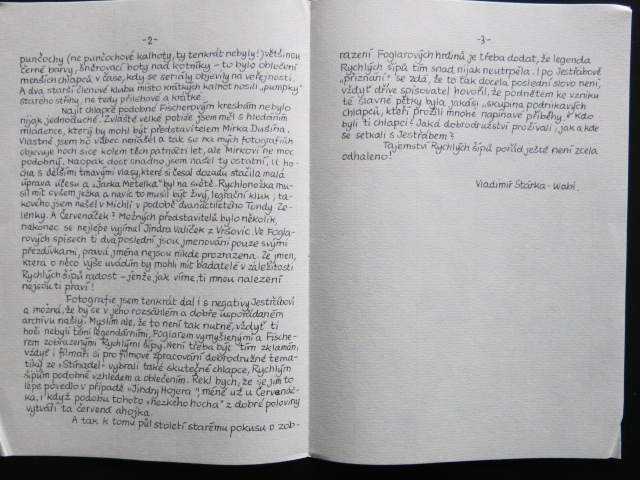 -2-
punčochy (ne punčochové kalhoty, ty tenkrát nebyly!) většinou
černé barvy, šněrovací boty nad kotníky - to bylo oblečení
menších chlapců v čase, kdy se seriály objevily na veřejnosti.
A dva starší členové klubu místo krátkých kalhot nosili „pumpky"
starého střihu, ne tedy přiléhavé a krátké.
Najít chlapce podobné Fischerovým kresbám nebylo
nijak jednoduché. Zvláště velké potíže jsem měl s hledáním
mládence, který by mohl být představitelem Mirka Dušína.
Vlastně jsem ho vůbec nenašel a tak se na mých fotografiích
objevuje hoch sice kolem těch patnácti let, ale Mirkovi ne moc
podobný. Naopak dost snadno jsem našel ty ostatní. U ho-
cha s delšími tmavými vlasy, které si česal dozadu stačila malá
úprava účesu a „Jarka Metelka" byl na světě. Rychlonožka mu-
sil mít ovšem ježka a navíc to musil být živý, legrační kluk; ta-
kového jsem našel v Michli v podobě dvanáctiletého Tondy Ze-
lenky. A Červenáček? Možných představitelů bylo několik,
nakonec se nejlépe vyjímal Jindra Valíček z Vršovic. Ve Fogla-
rových spisech ti dva poslední jsou jmenováni pouze svými
přezdívkami, pravá jména nejsou nikde prozrazena. Ze jmen,
která o něco výše uvádím by mohli mít badatelé v záležitosti
Rychlých šípů radost - jenže, jak víme, ti mnou nalezení
nejsou ti praví!
Fotografie jsem tenkrát dal i s negativy Jestřábovi
a možná, že by se v jeho rozsáhlém a dobře uspořádaném
archivu našly. Myslím ale, že to není tak nutné, vždyť ti
hoši nebyli těmi legendárními, Foglarem vymyšlenými a Fische-
rem zobrazenými Rychlými šípy. Není třeba být tím zklamán,
vždyť i filmaři si pro filmové zpracování dobrodružné tema-
tiky ze „Stínadel" vybrali také skutečné chlapce, Rychlým
šípům podobné vzhledem a oblečením. Řekl bych, že se jim to
lépe povedlo v případě „Jindry Hojera", méně už u Červená-
ka, i když podobu tohoto „hezkého hocha" z dobré poloviny
vytváří ta červená ahojka.
A tak k tomu půl století starému pokusu o zob-
-3-
razení Foglarových hrdinů je třeba dodat, že legenda
Rychlých šípů tím snad nijak neutrpěla. I po Jestřábově
„přiznání" se zdá, že to tak docela poslední slovo není,
vždyť dříve spisovatel hovořil, že podnětem ke vzniku
té slavné pětky byla jakási „skupina podnikavých
chlapců, kteří prožili mnohé napínavé příběhy." Kdo
byli ti chlapci? Jaká dobrodružství prožívali; jak a kde
se setkali s Jestřábem?
Tajemství Rychlých šípů pořád ještě není zcela
odhaleno!
Vladimír Stárka-Wabi.